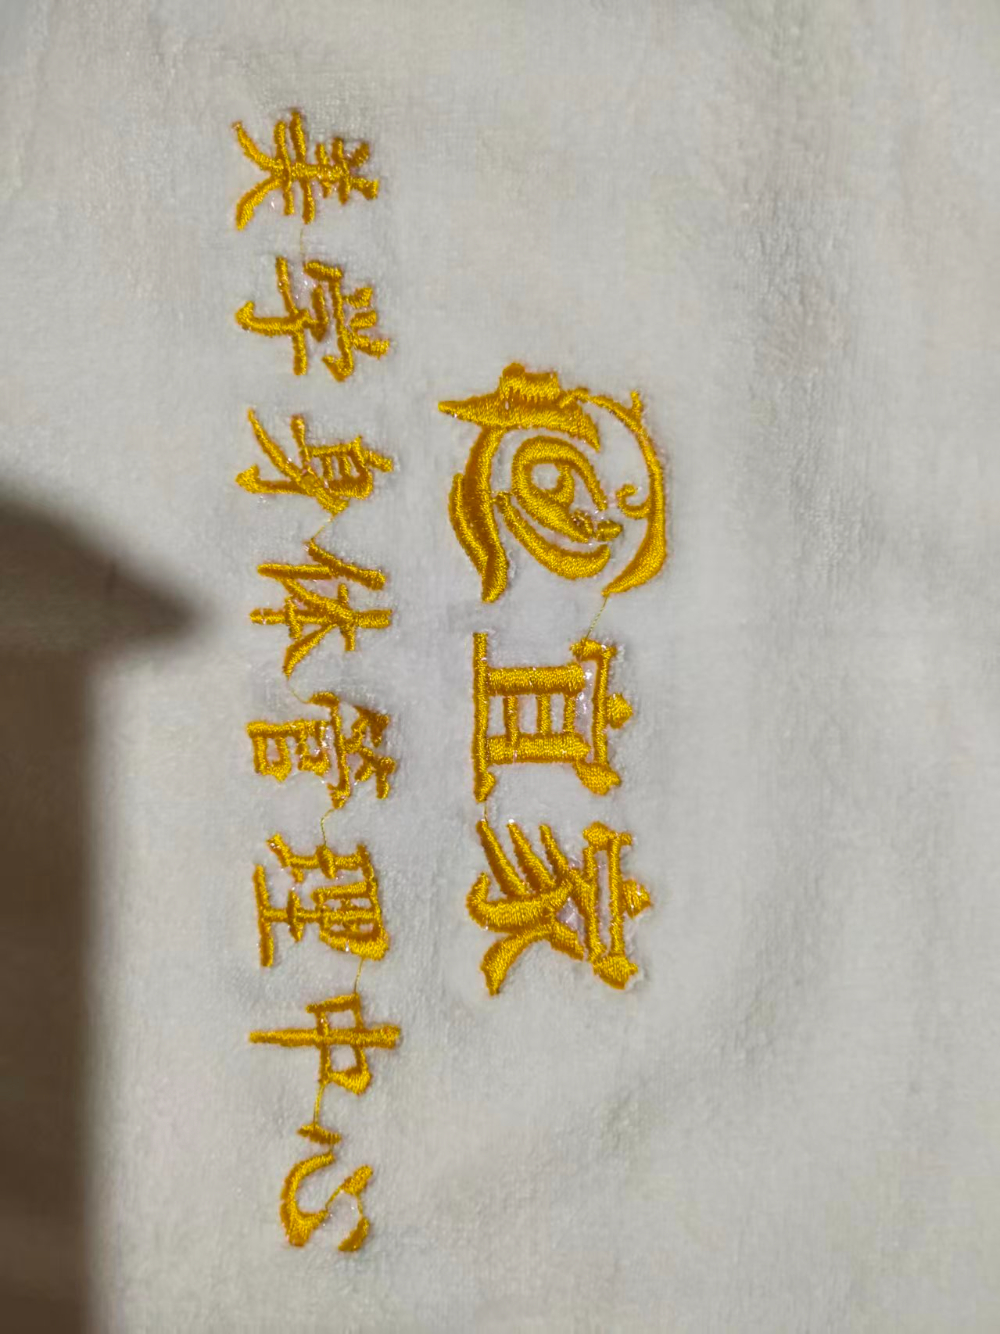 宜家
美学身体管理中心